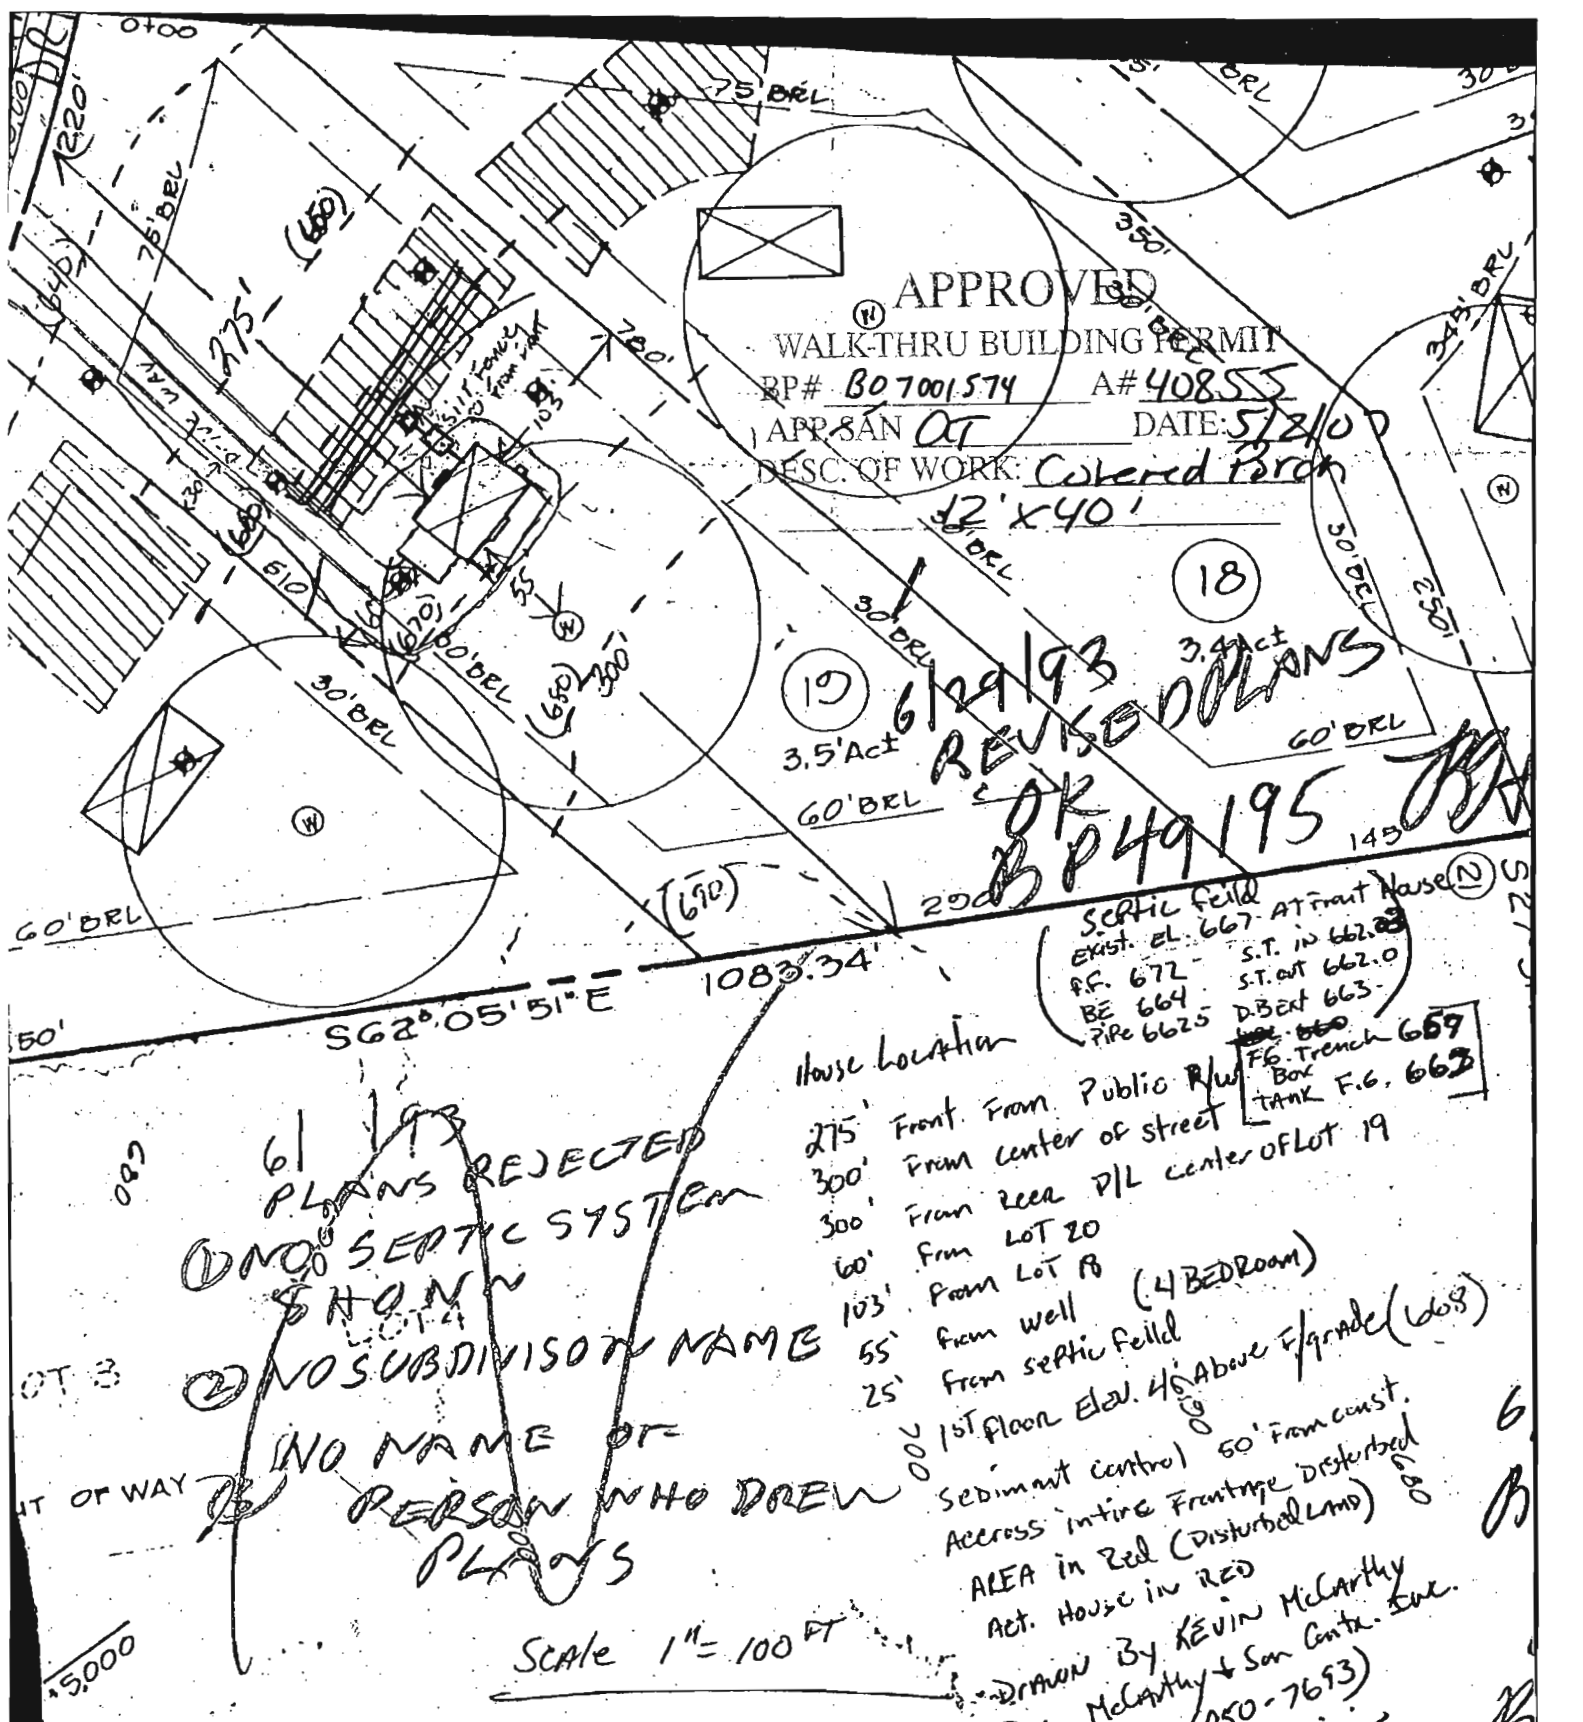 0+00
220'
75' BRL
75' BRL
(650)
(640)
275'
780'
103'
SILT Fence
From
350'
30' BRL
345' BRL
APPROVED
WALK-THRU BUILDING PERMIT
BP# B07001574 A# 40855
APP. SAN OT DATE: 5/2/07
DESC. OF WORK: Covered Porch
12' x 40'
30' BRL
30' BRL
30' BRL
250'
18
3.4 Ac±
W
W
W
W
610
55
(670)
(680)
300'
30' BRL
19
3.5' Ac±
6/29/93
REVISED PLANS
OK
BP49195
60' BRL
60' BRL
60' BRL
(690)
290
145
1083.34'
S62° 05' 51" E
50'
Septic Feild
Exist. EL. 667 AT Front House
F.F. 672 S.T. in 662.
BE 664 S.T. out 662.0
Pipe 6625 D.B Ext 663
F.G. Trench 659
Box
TANK F.G. 663
House Location
275' Front From Public R/W
300' From center of street
300' From Reer P/L center OF Lot 19
60' From LOT 20
103' From LOT 18
55' from well (4 BEDROOM)
25' from septic feild
1ST Floor Elev. 4' Above F/grade (668)
Sediment control 50' From const.
Accross intire Frontage Disturbed
AREA in Red (Disturbed LAND)
Act. House in RED
Drawn By KEVIN McCarthy
McCarthy & Son Contr. Inc.
050-7693)
6/ /93
PLANS REJECTED
① NO SEPTIC SYSTEM
SHOWN
② NO SUBDIVISON NAME
NO NAME OF
PERSON WHO DREW
PLANS
LOT 4
OT 3
680
700
690
680
OF WAY
5,000
Scale 1" = 100 FT